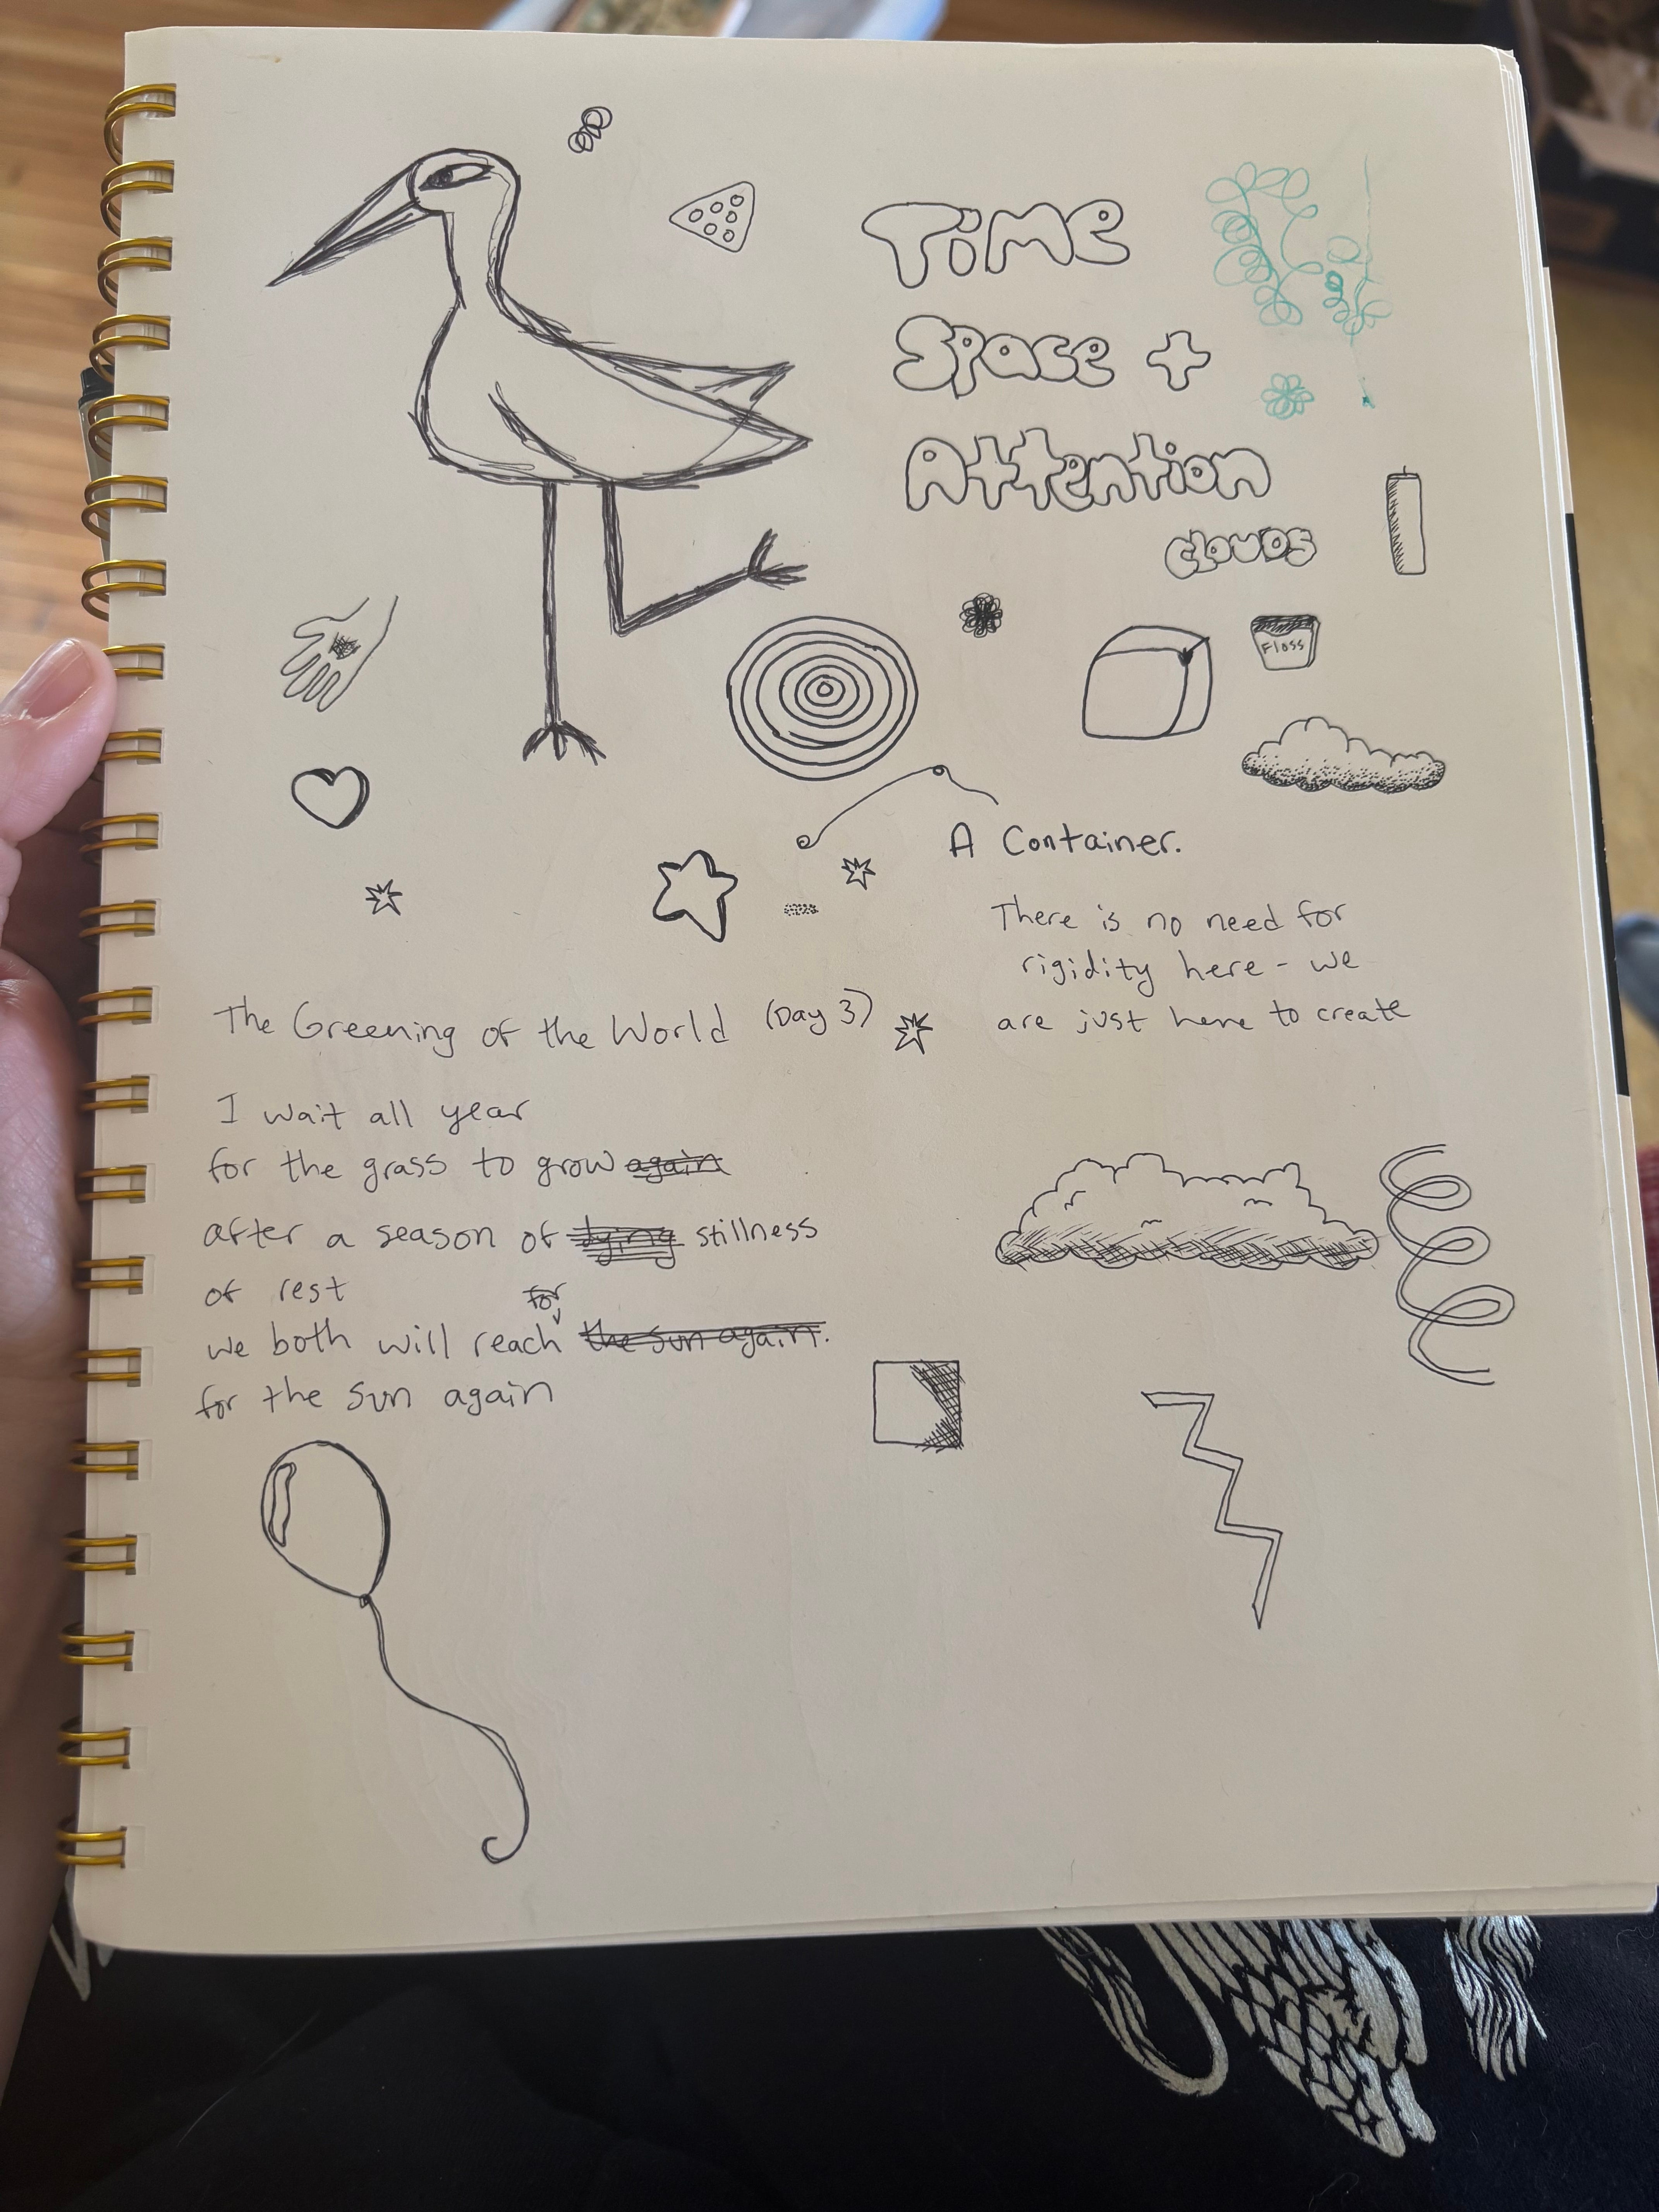 Time
Space +
Attention
CLOUDS
Floss
A Container.
There is no need for
rigidity here - we
are just here to create
The Greening of the World (Day 3)
I wait all year
for the grass to grow again
after a season of dying stillness
of rest
for
we both will reach the sun again.
for the sun again